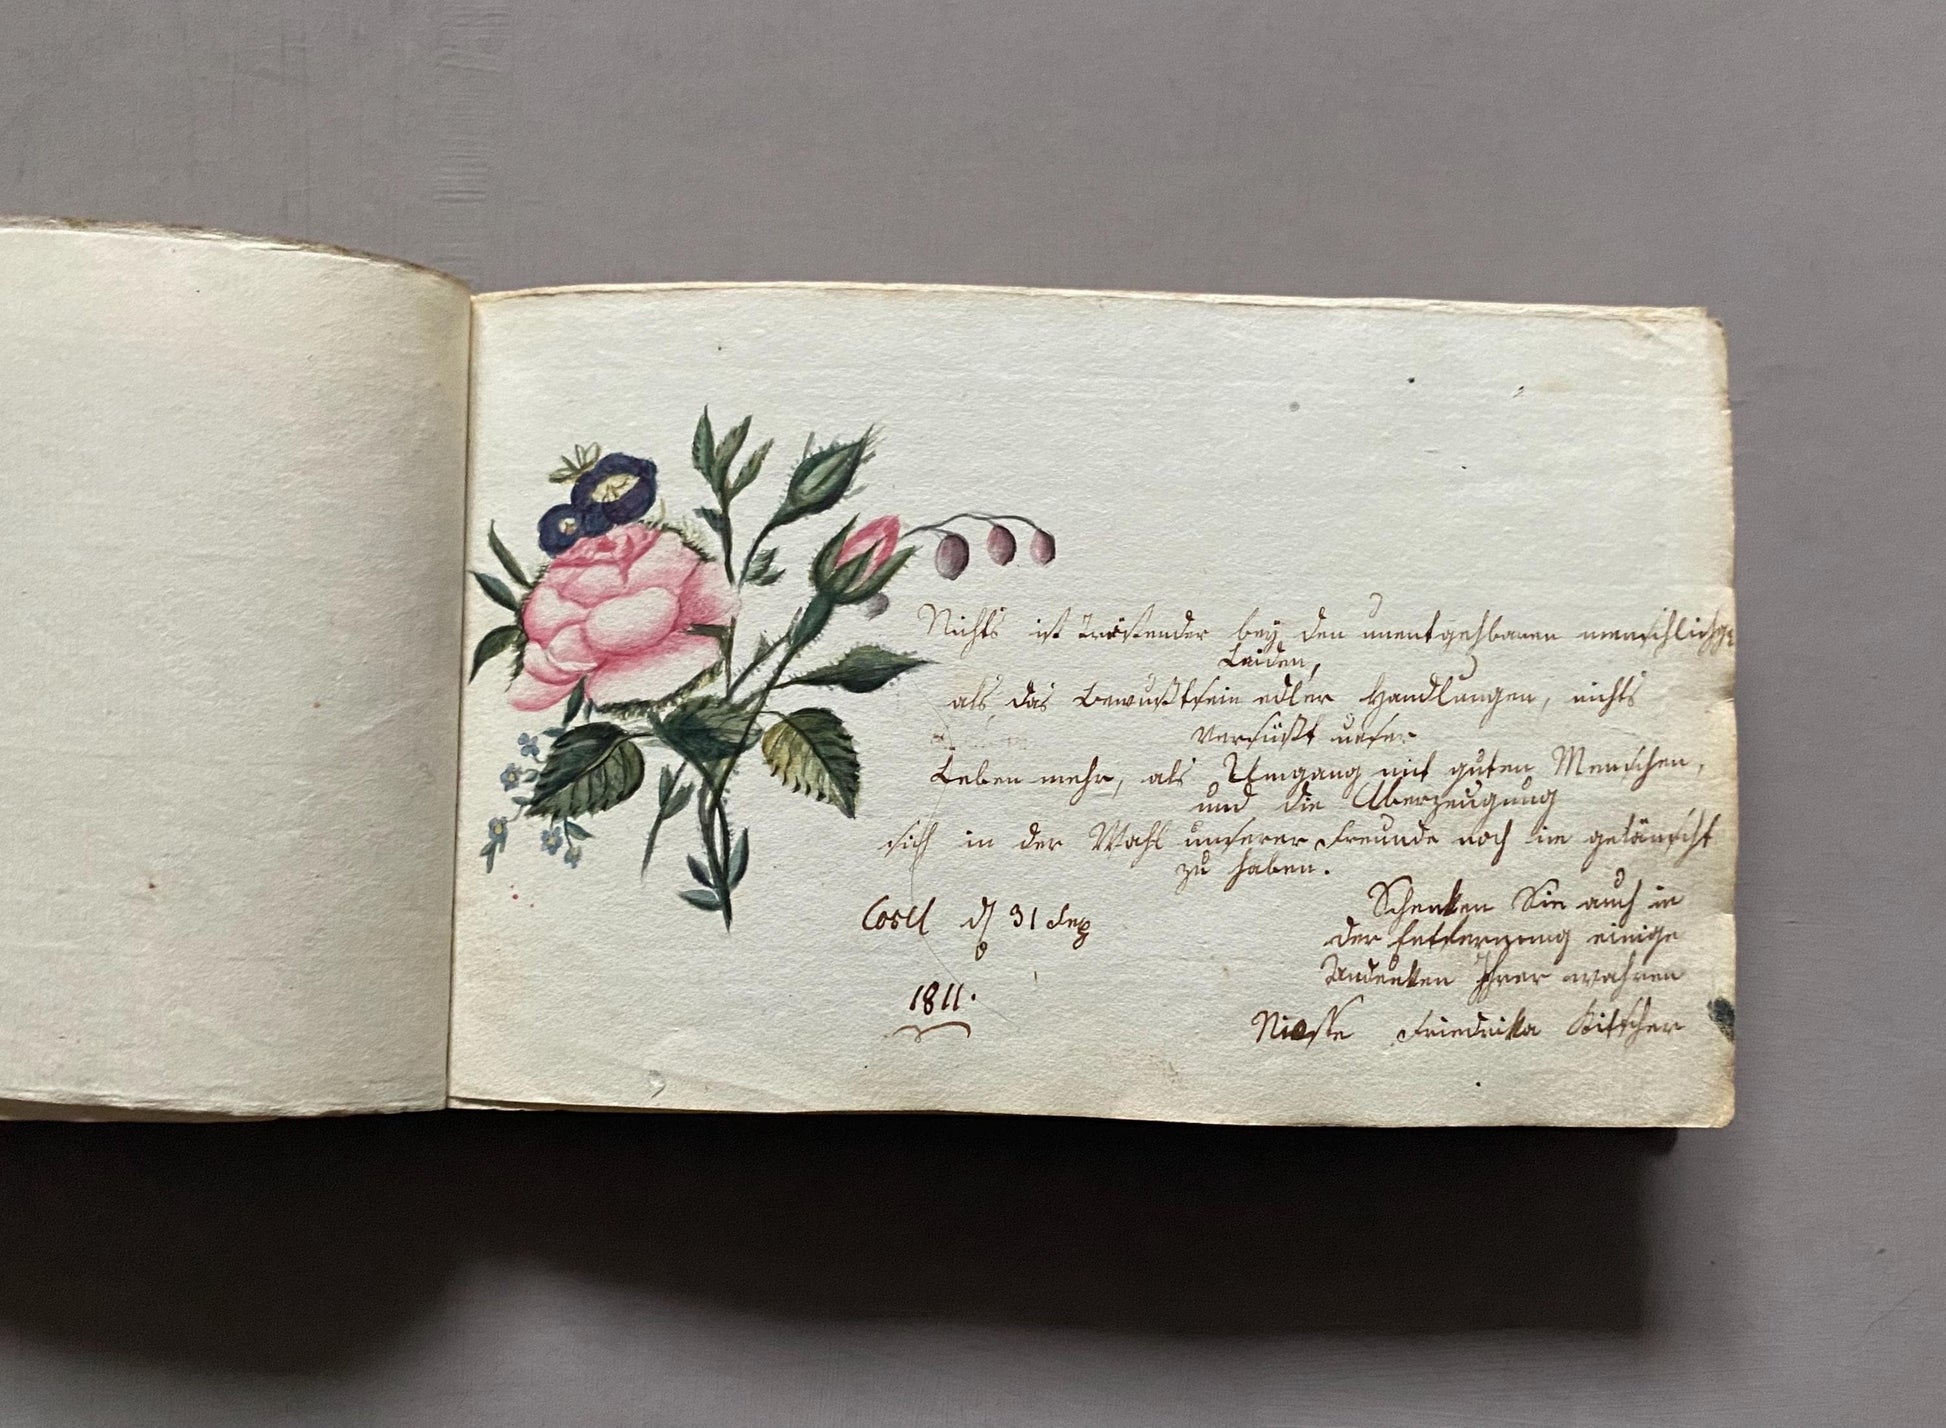 Nichts ist Tröstender bey den unentgehbaren menschlichen
Leiden,
als das Bewußtsein edler Handlungen, nichts
versüßt unser
Leben mehr, als Umgang mit guten Menschen,
und die Überzeugung
sich in der Wahl unserer Freunde noch nie getäuscht
zu haben.
Cosel d 31
1811.
Schenken Sie auch in
der Entfernung einige
Andenken Ihrer wahren
Friedrika